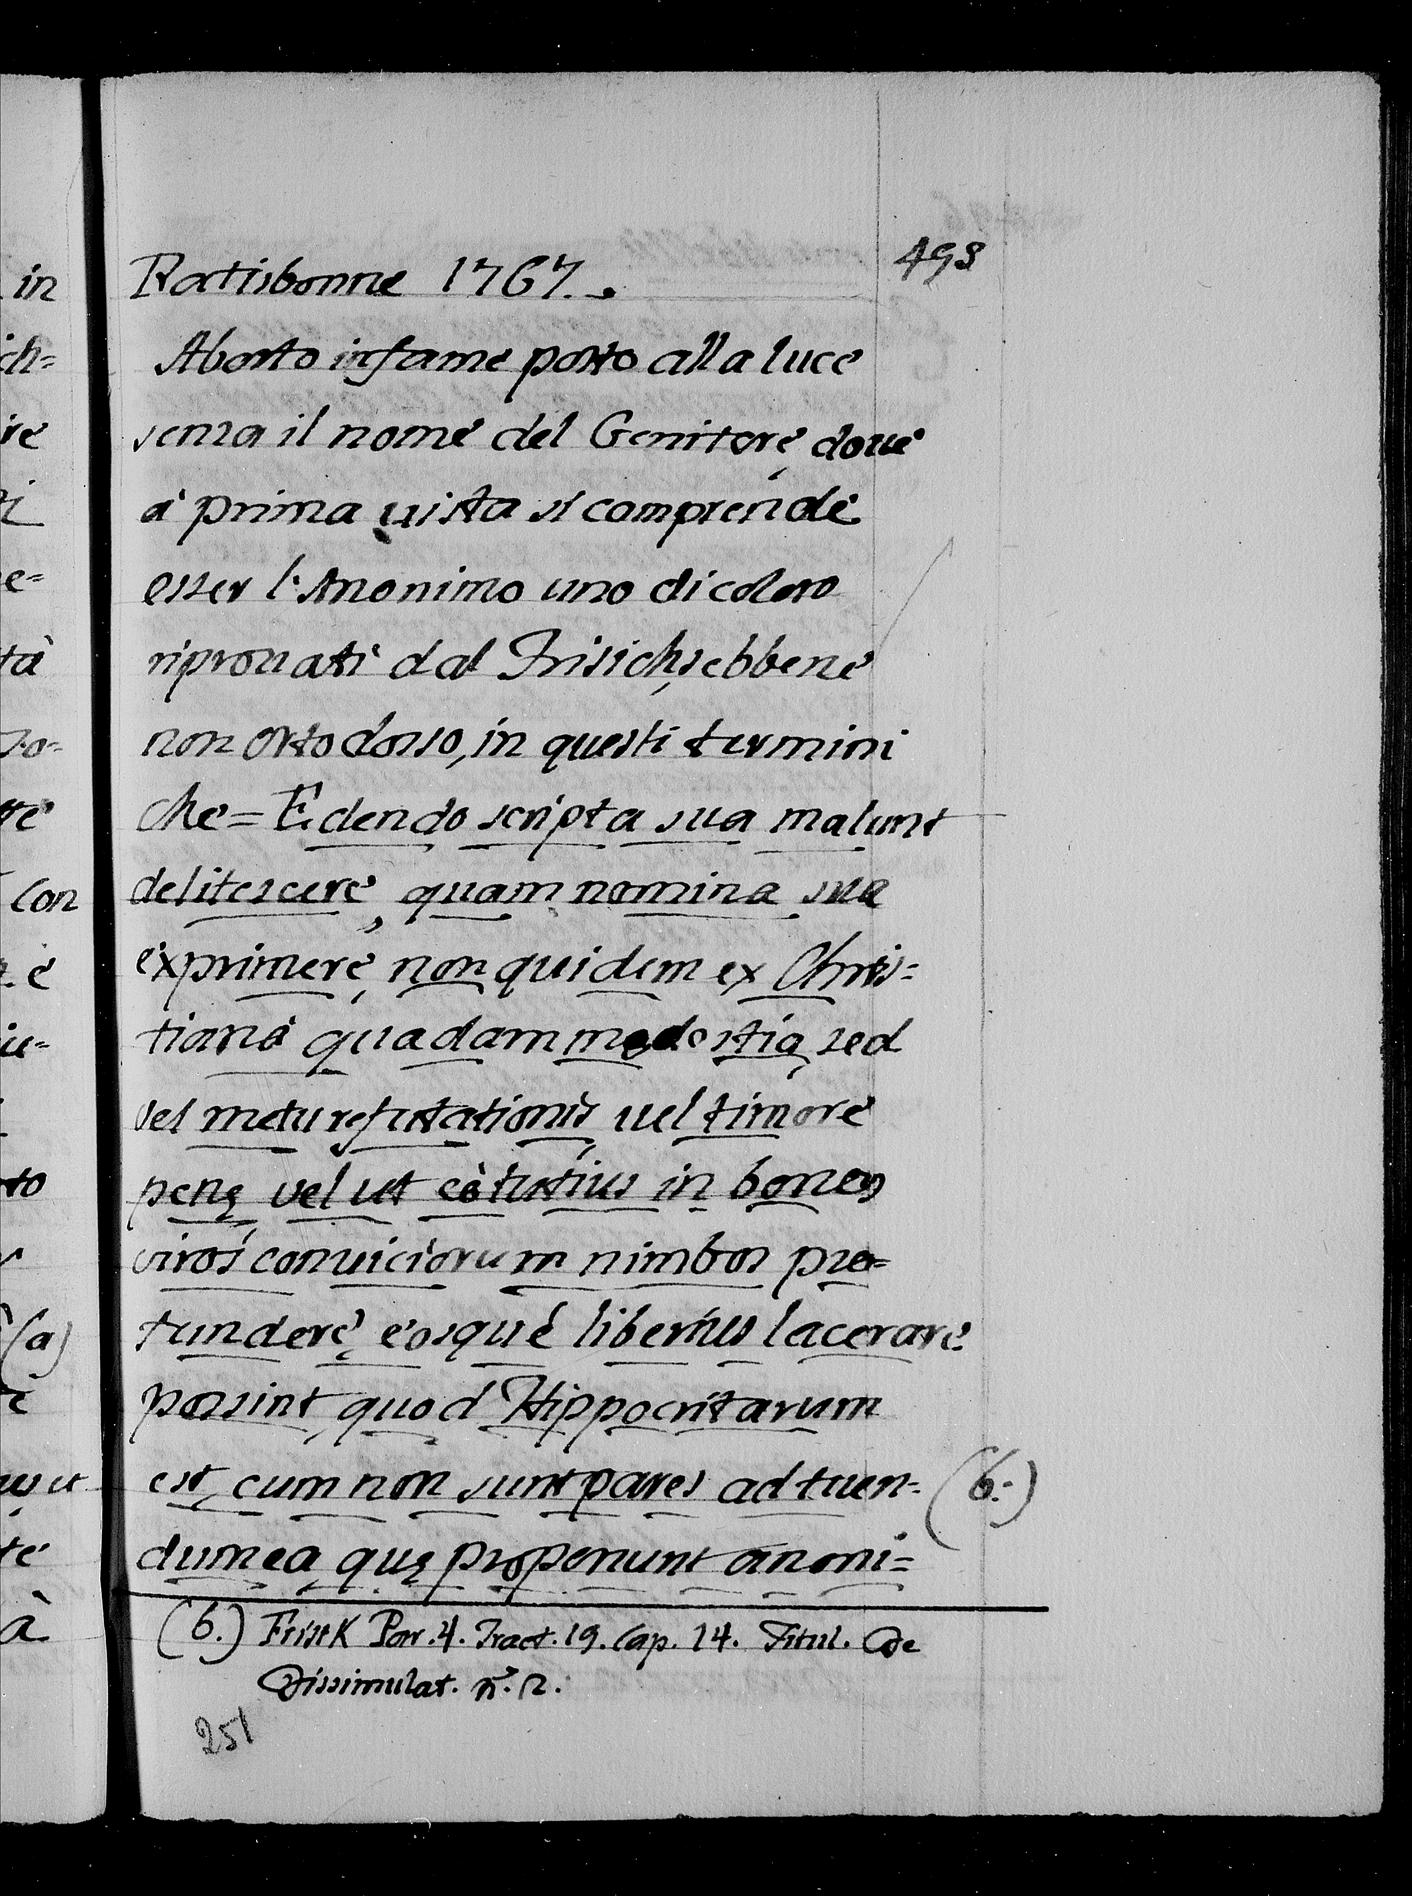 493
Rattisbonne 1767.
Aborto infame posto alla luce
senza il nome del Genitore, doue
à prima uista si comprende
esser l'Anonimo uno di coloro
riprouati dal Frisich, sebbene
non ortodosso, in questi termini
che = Edendo scripta sua malunt
delitescere, quam nomina sua
exprimere, non quidem ex Chris=
tiana quadam modestia, sed
vel metu refutationis, uel timore
penę vel ut eò tutius in bonos
viros conuiciorum nimbos pro=
tundere, eosque liberius lacerare
possint, quod Hippocritarum
est, cum non sunt pares ad tuen= (b.)
dum ea, quę proponunt anoni=
(b.) Frisik Par. 4. Tract. 19. Cap. 14. Titul. De
Dissimulat. n.° 2.
251
in
ich=
re
e=
tà
to=
con
è
ue=
to
(a)
te
à